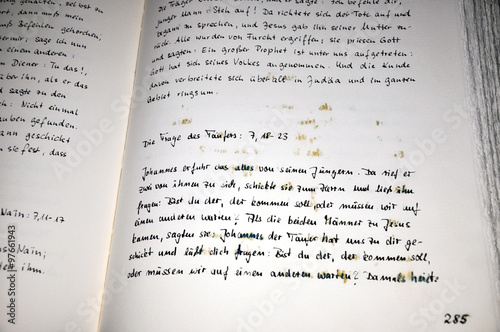 genachten, selbst zu
ort, dann muß mein
uß Befehlen gehorchen,
ter mir; sage ich nun
u einem anderen:
n Diener: Tu das!,
über ihn, als er das
sagte zu den
: Nicht einmal
lauben gefunden.
ann geschickt
sie fest, dass
Naïn: 7, 11-17
Naïn;
ihm.
Die Träger
junger Mann: Steh auf! Da richtete sich der Tote auf und
begann zu sprechen, und Jesus gab ihn seiner Mutter zu-
rück. Alle wurden von Furcht ergriffen; sie priesen Gott
und sagten: Ein großer Prophet ist unter uns aufgetreten:
Gott hat sich seines Volkes angenommen. Und die Kunde
davon verbreitete sich überall in Judäa und im ganzen
Gebiet ringsum.
Die Frage des Täufers: 7, 18-23
Johannes erfuhr das alles von seinen Jüngern. Da rief er
zwei von ihnen zu sich, schickte sie zum Herrn und ließ ihn
fragen: Bist du der, der kommen soll oder müssen wir auf
einen anderen warten? Als die beiden Männer zu Jesus
kamen, sagten sie: Johannes der Täufer hat uns zu dir ge-
schickt und läßt dich fragen: Bist du der, der kommen soll,
oder müssen wir auf einen anderen warten? Damals heilte
285
Adobe Stock | #97661943